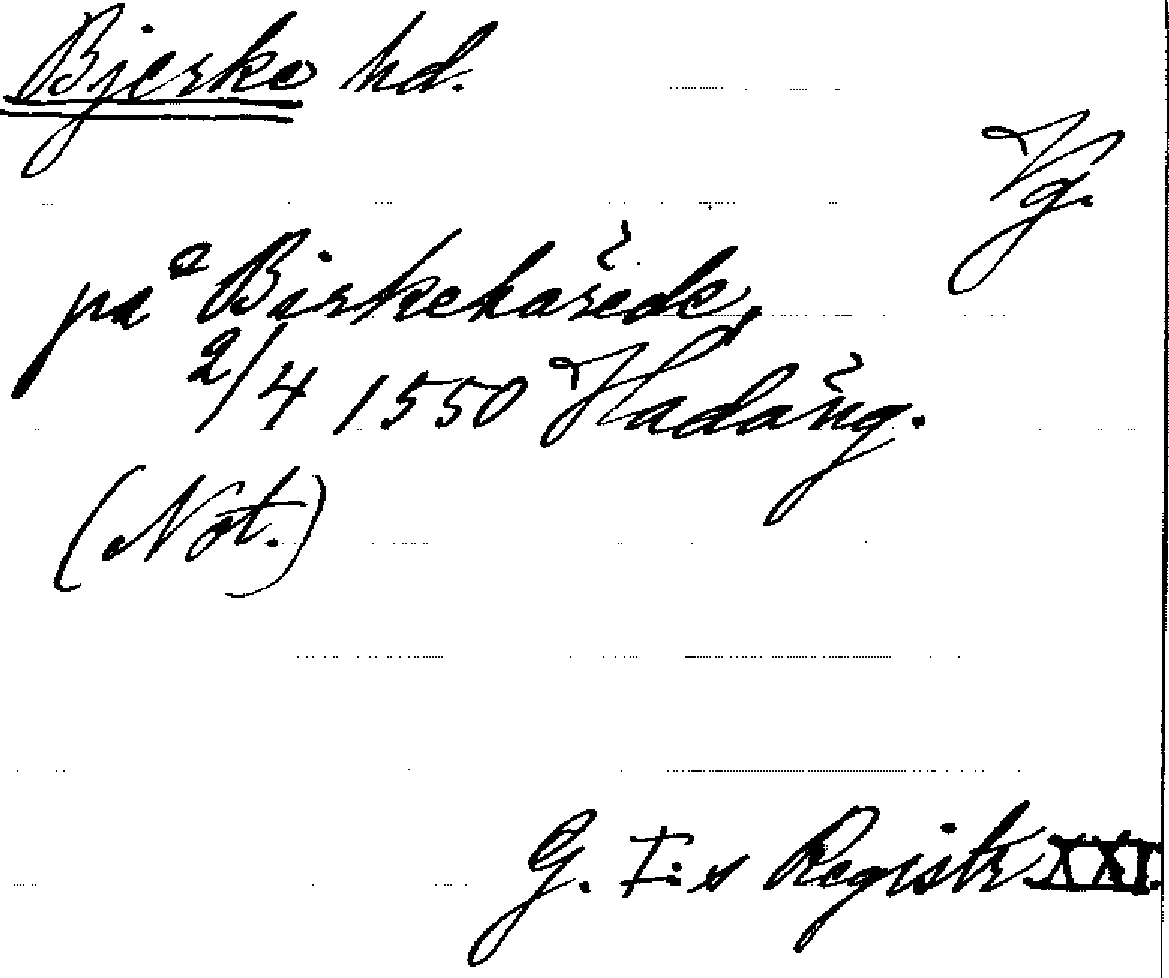 Bjerke hd.
Vg.
på Birkehärede,
2/4 1550 Hadäng.
(Not.)
G. I:s Registr. XXI.